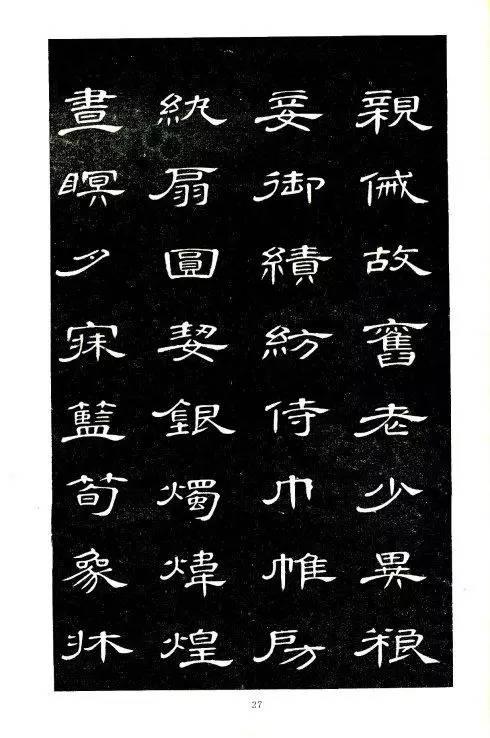 親傶故舊老少異粮
妾御績紡侍巾帷房
紈扇圓絜銀燭煒煌
晝瞑夕寐藍筍象牀
27